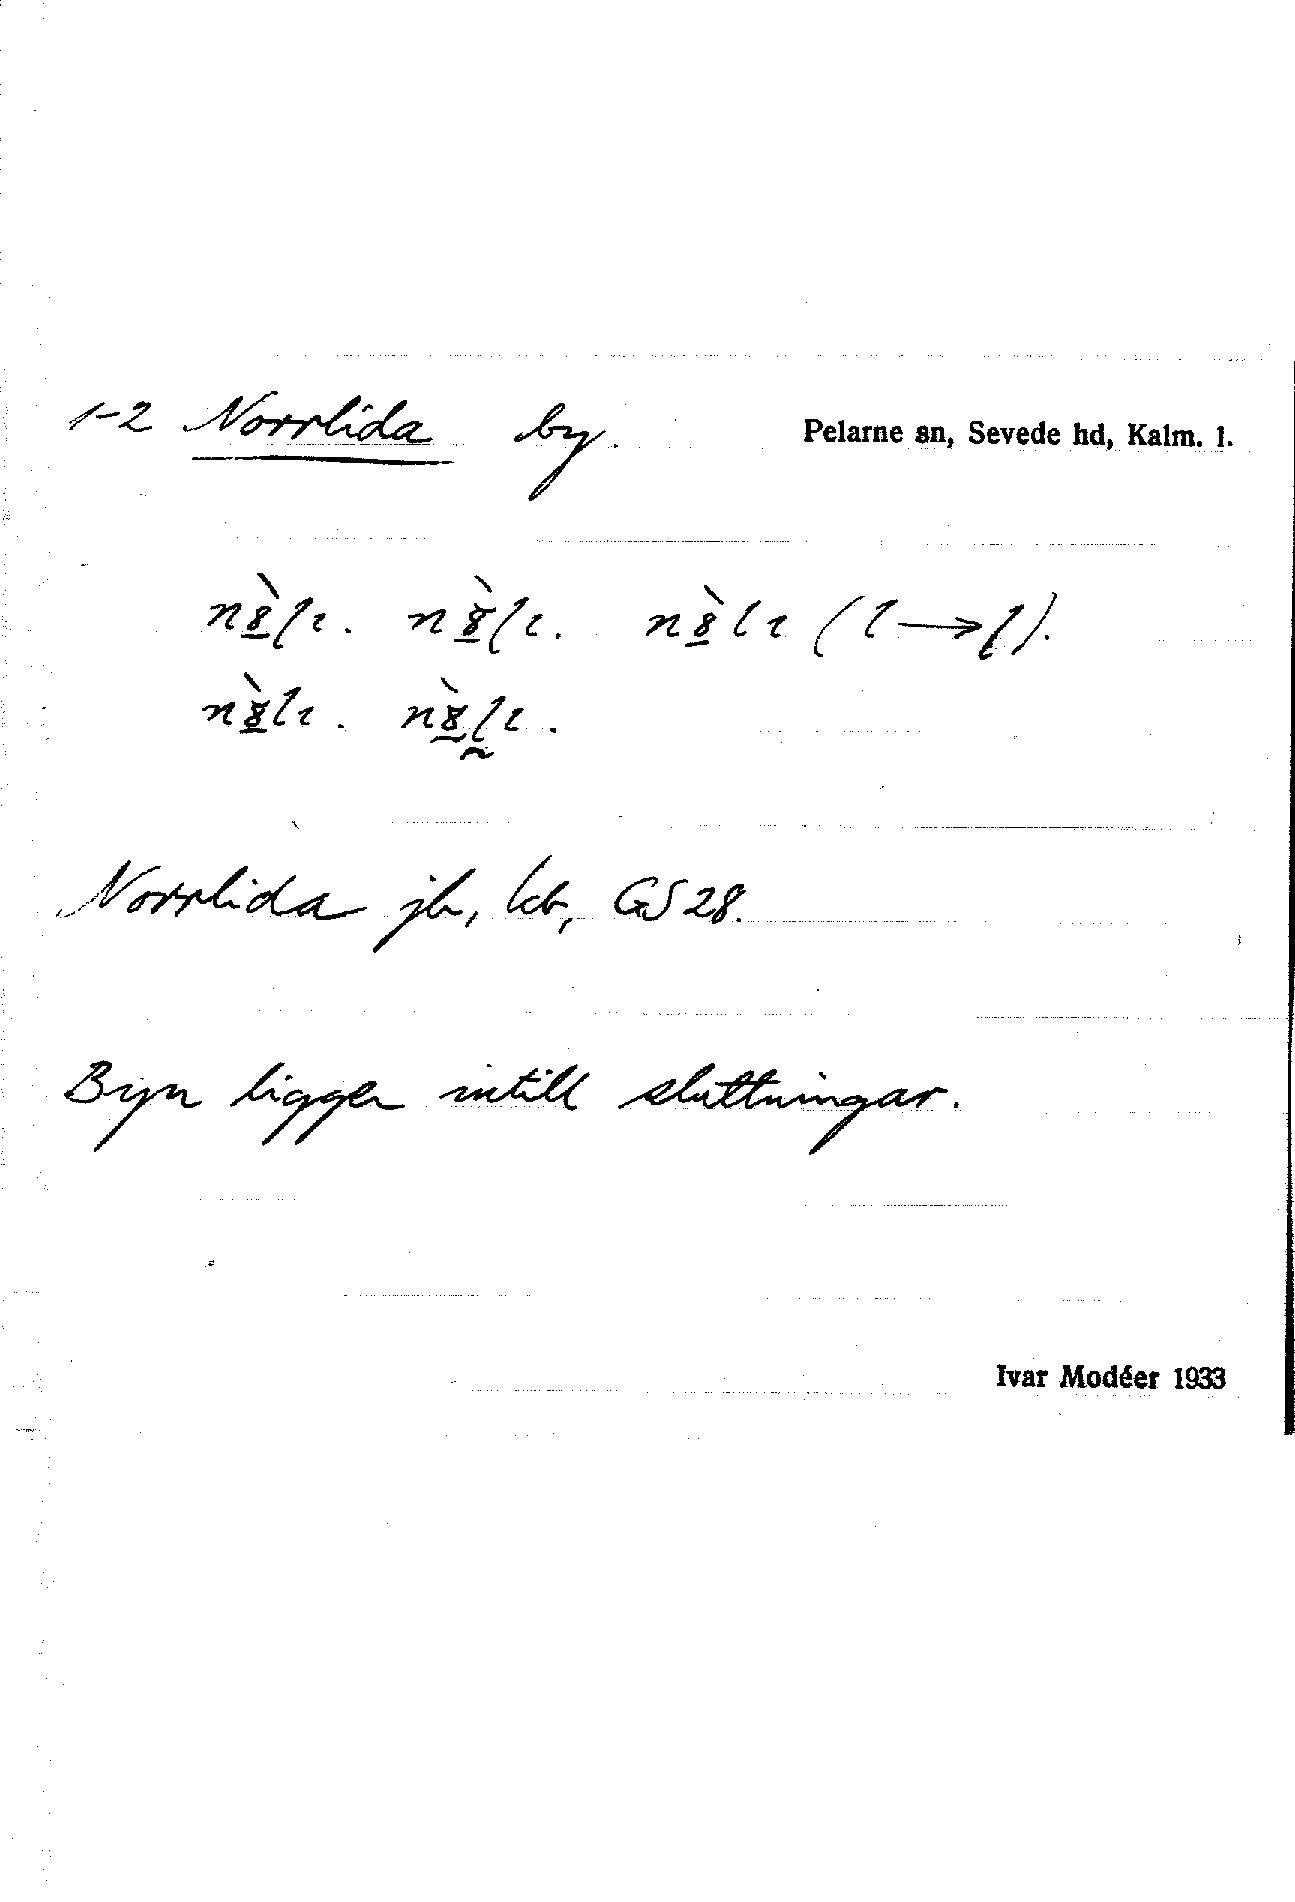 1-2 Norrlida by. Pelarne sn, Sevede hd, Kalm. l.
Norrlida jb, kb, GS 28.
Byn ligger intill sluttningar.
Ivar Modéer 1933